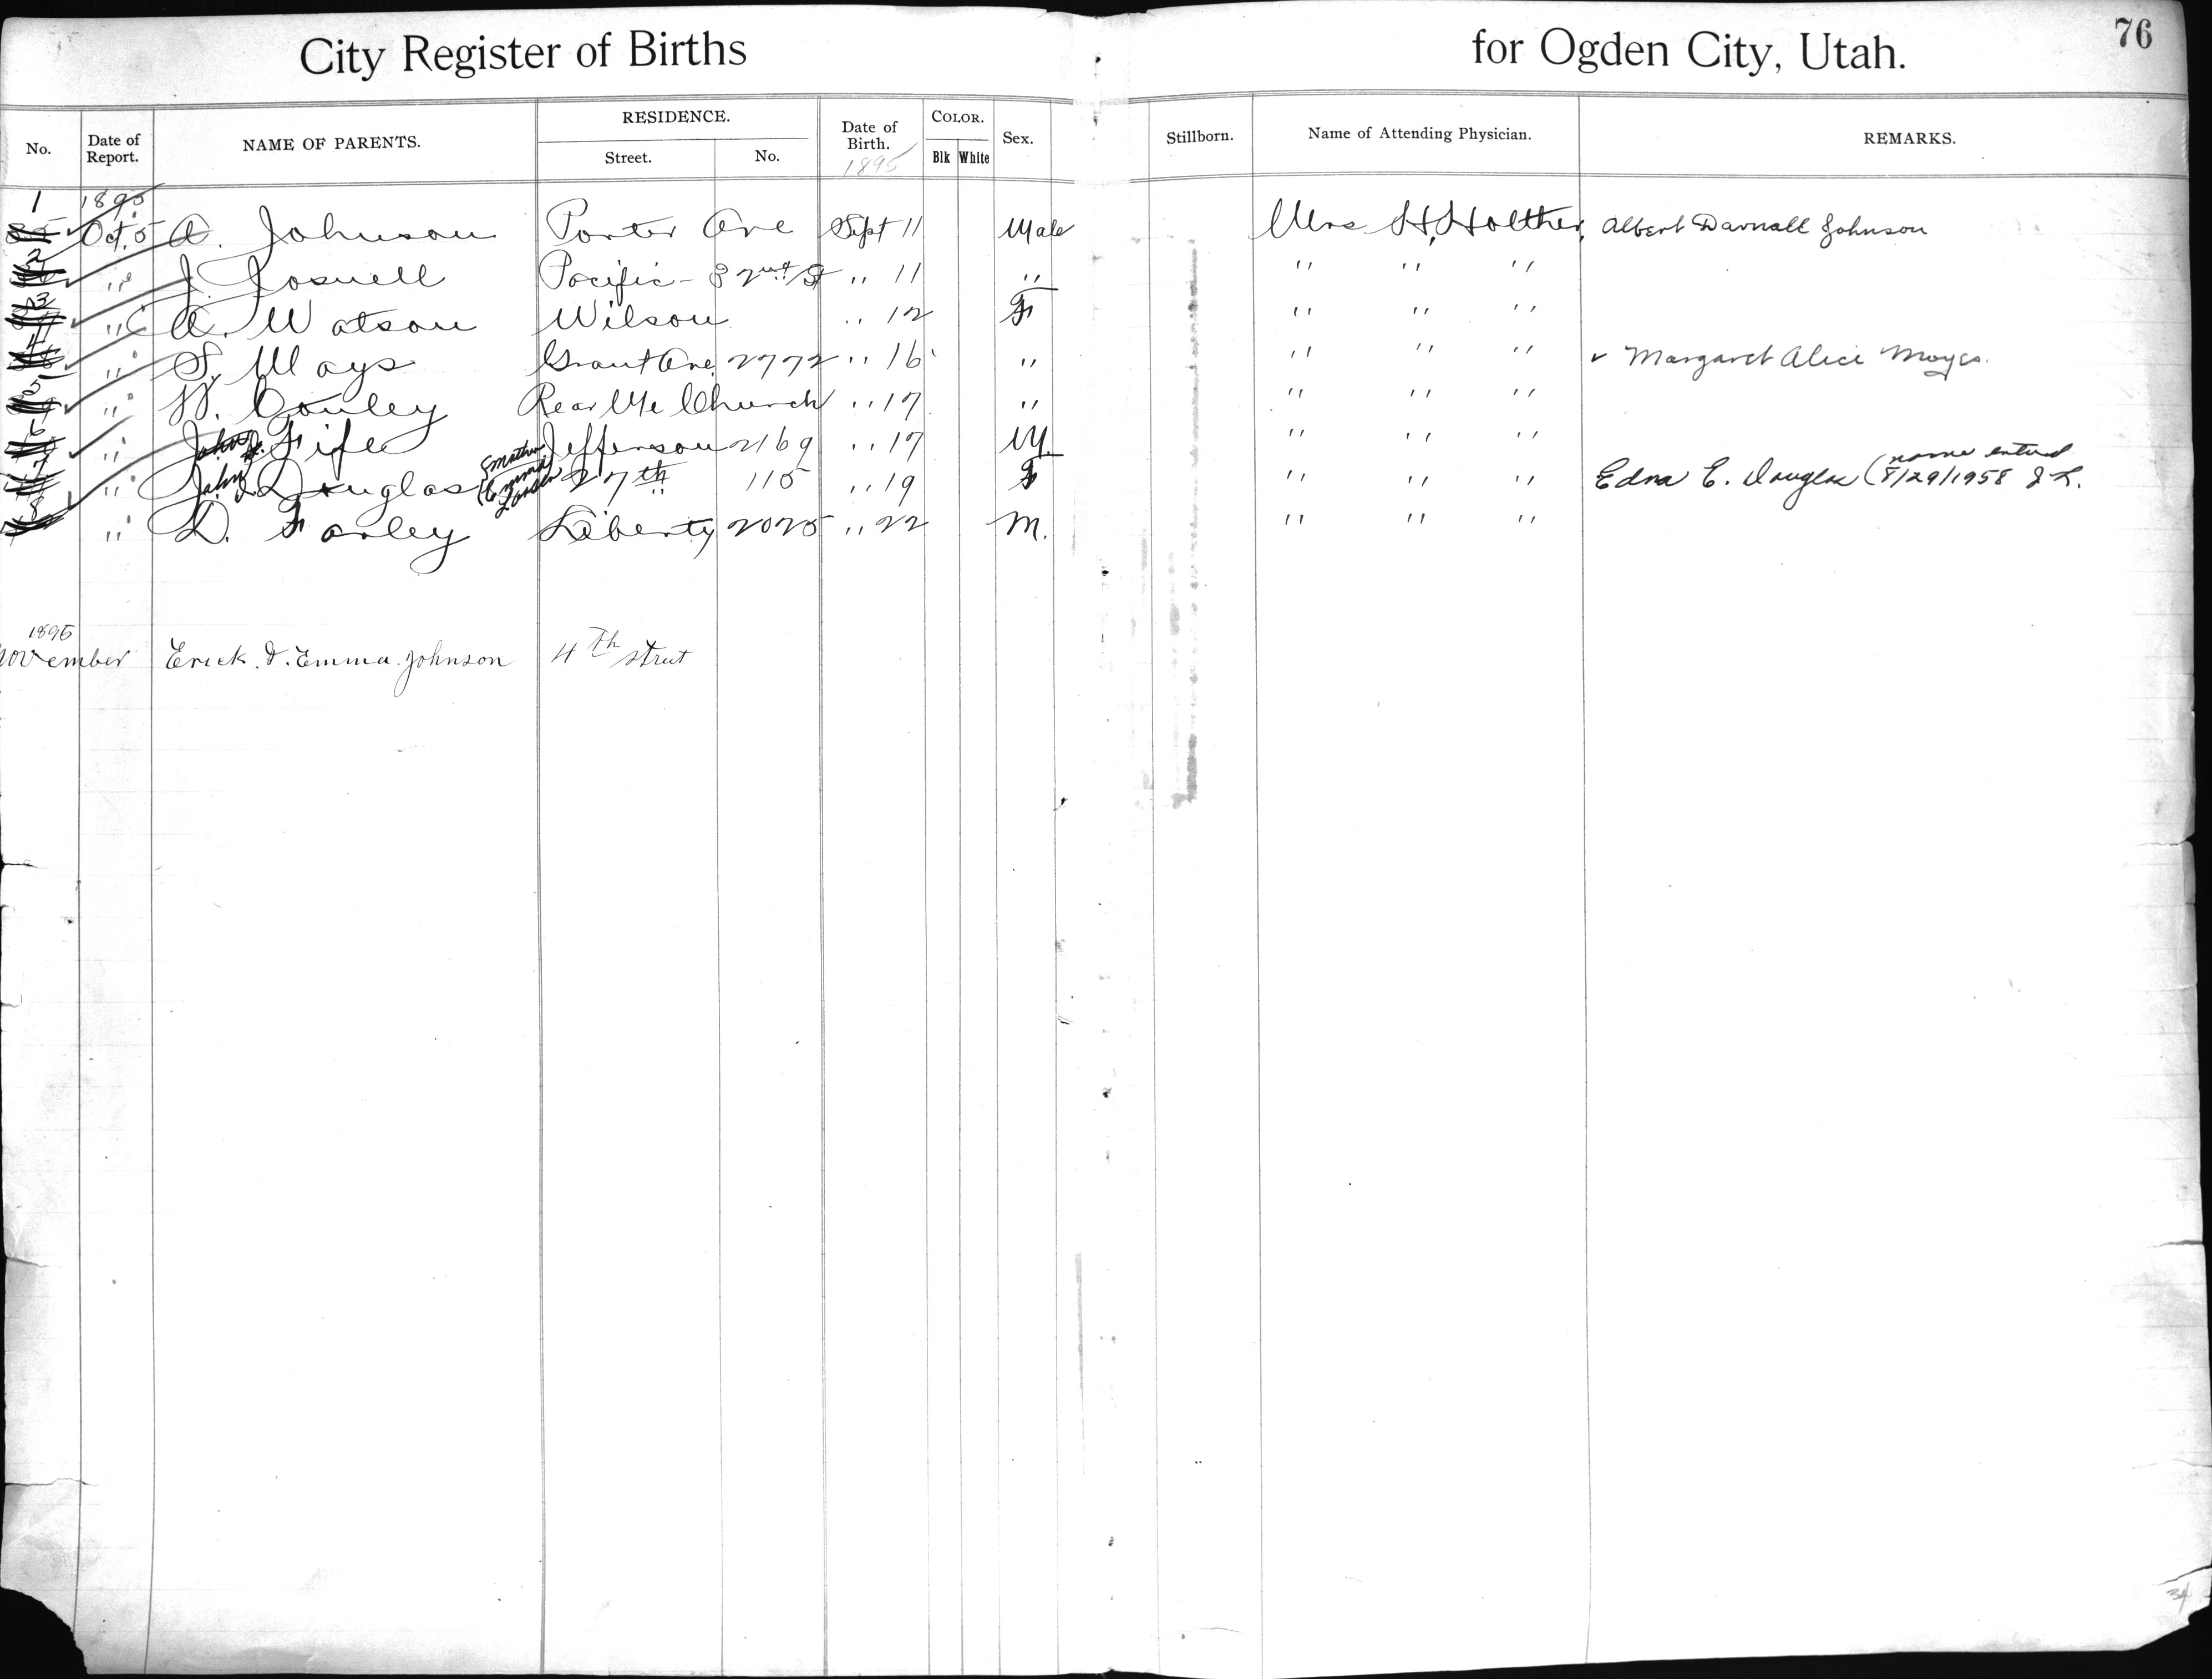 City Register of Births for Ogden City, Utah. 76
No. Date of Report. NAME OF PARENTS. RESIDENCE. Street. No. Date of Birth. 1895 COLOR. Blk White Sex. Stillborn. Name of Attending Physician. REMARKS.
1 1895
Oct. 5 A. Johnson Porter Ave Sept 11 Male Mrs H. Holther, Albert Darnall Johnson
2 " J. Josnell Pacific - 32nd St " 11 " " " "
3 " A. Watson Wilson " 12 F " " "
4 " S. Mays Grant Ave 2772 " 16 " " " " ✓ Margaret Alice Moyes.
5 " W. Conley Rear Me Church " 17 " " " "
6 " Fife Jefferson 2169 " 17 M. " " "
7 " John Douglas (Mother Emma Larsen 27th 115 " 19 F " " " Edna E. Douglas (name entered 8/29/1958 J L.
8 " D. Farley Liberty 2025 " 22 M. " " "
1895
November Erick. & Emma Johnson 4th street
34